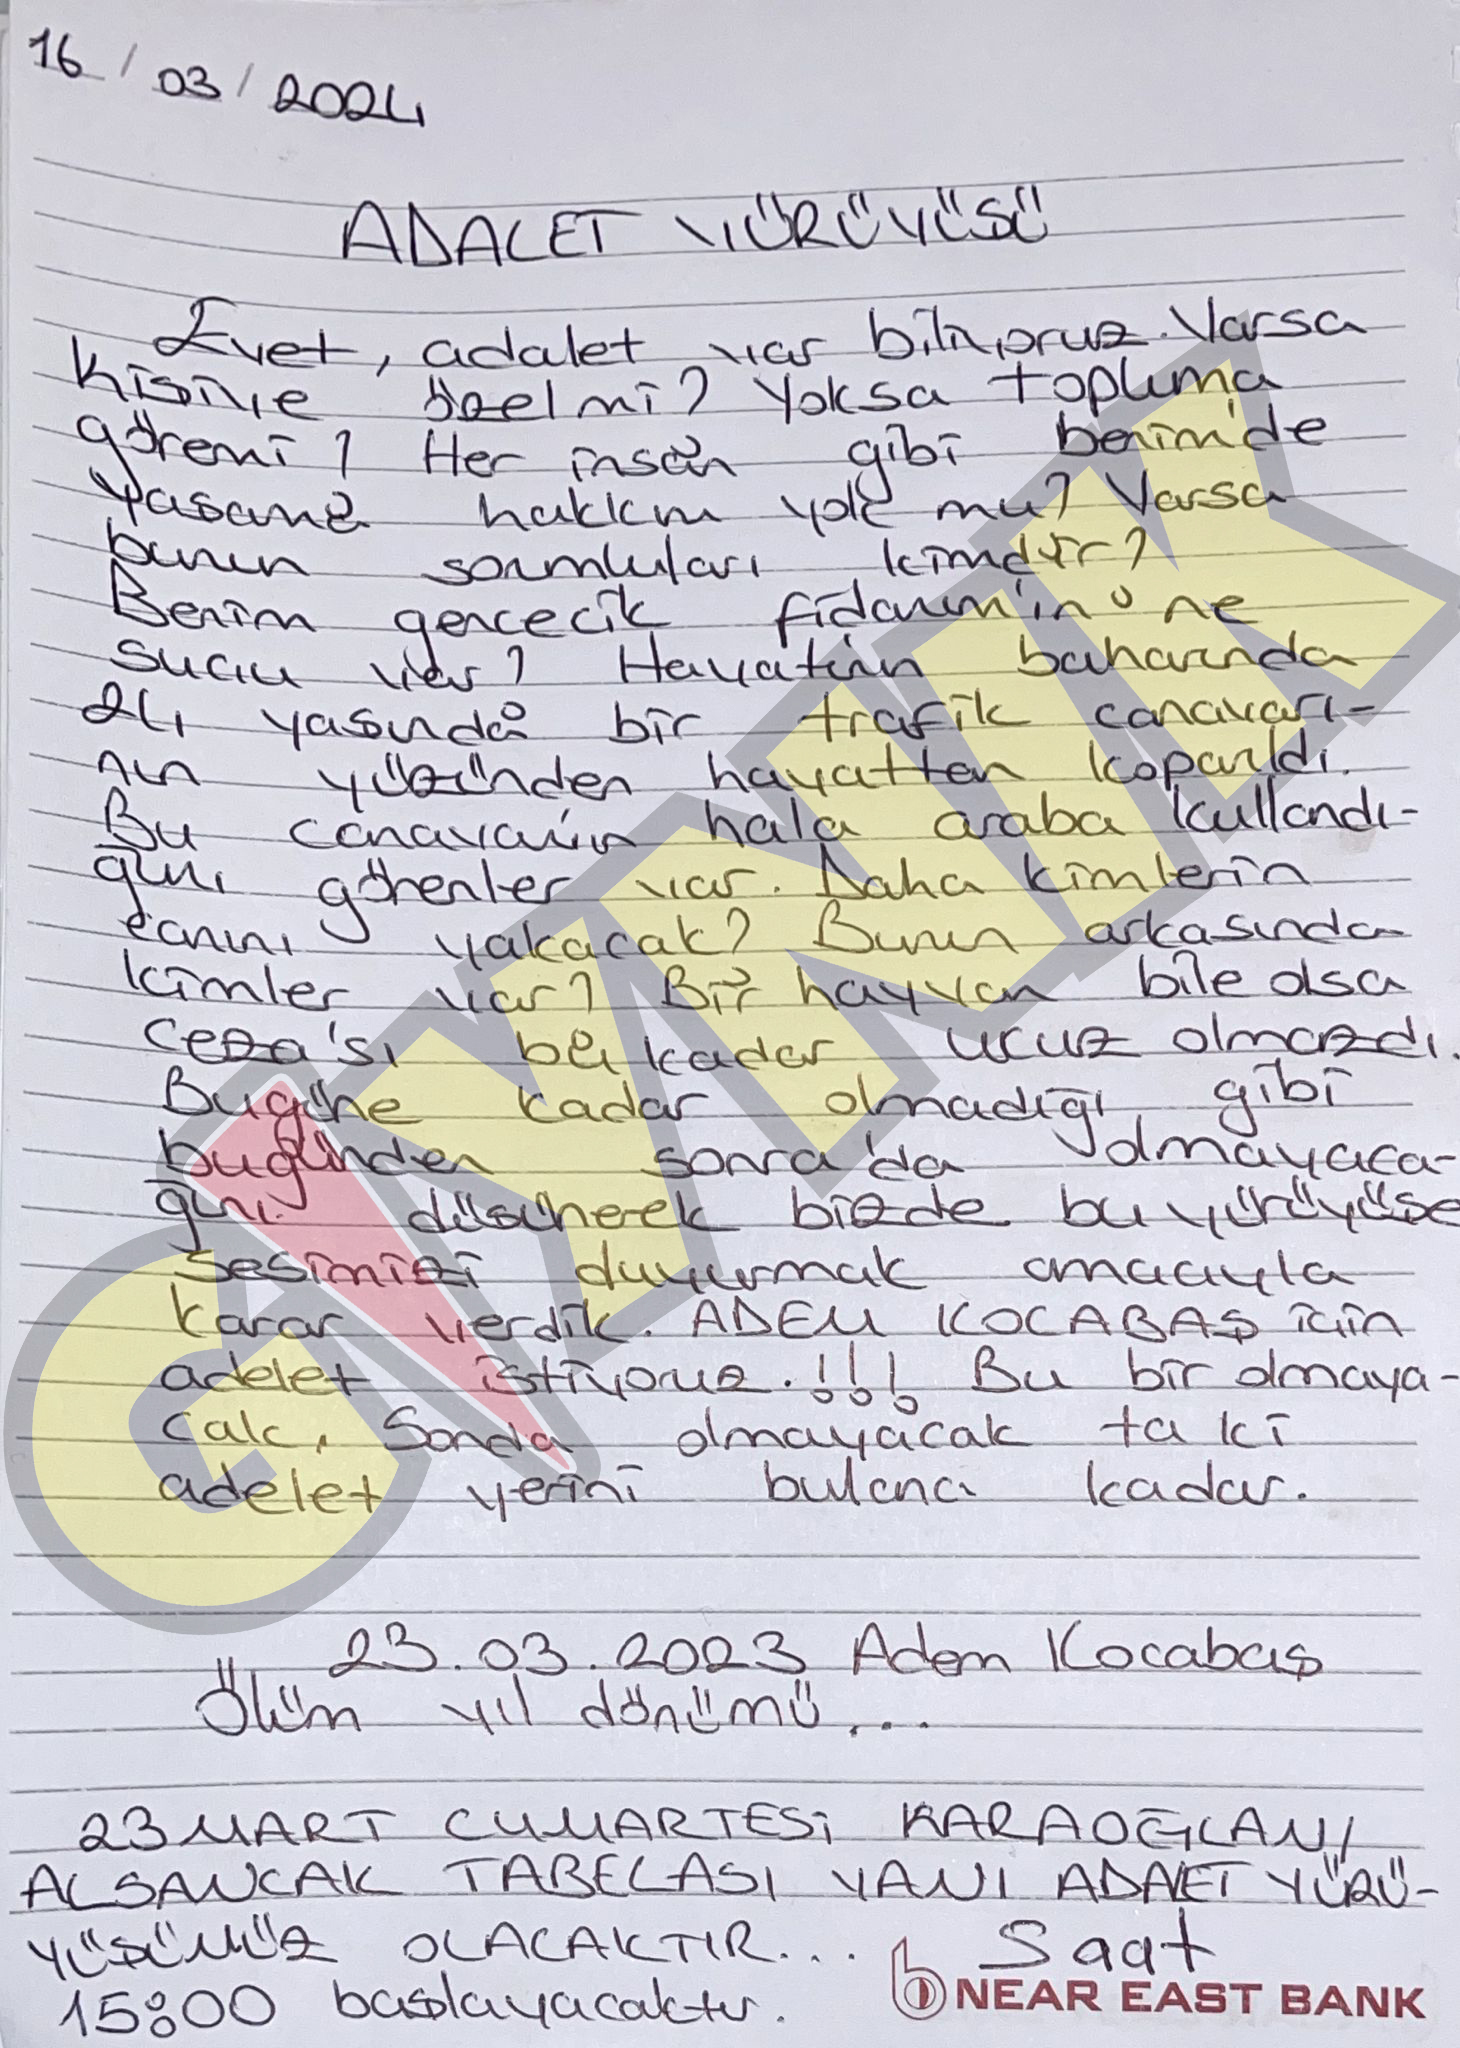 16/03/2024
ADALET YÜRÜYÜŞÜ
Evet, adalet var biliyoruz. Varsa
kişiye özelmi? Yoksa topluma
göremi? Her insan gibi benim'de
yaşama hakkım yok mu? Varsa
bunun sorumluları kimdir?
Benim gencecik fidanım'ın ne
suçu var? Hayatının baharında
24 yaşında bir trafik canavarı-
nın yüzünden hayattan koparıldı.
Bu canavarın hala araba kullandı-
ğını görenler var. Daha kimlerin
canını yakacak? Bunun arkasında
kimler var? Bir hayvan bile olsa
ceza'sı bu kadar ucuz olmazdı.
Bugüne kadar olmadığı gibi
bugünden sonra'da olmayaca-
ğını düşünerek bizde bu yürüyüşe
sesimizi duyurmak amacıyla
karar verdik. ADEM KOCABAŞ için
adelet istiyoruz.!!! Bu bir olmaya-
cak, Sonda olmayacak ta ki
adelet yerini bulana kadar.
23.03.2023 Adem Kocabaş
Ölüm yıl dönümü...
23 MART CUMARTESİ KARAOĞLAN/
ALSANCAK TABELASI YANI ADALET YÜRÜ-
YÜŞÜMÜZ OLACAKTIR... Saat
15:00 başlayacaktır.
NEAR EAST BANK
GIYNIK